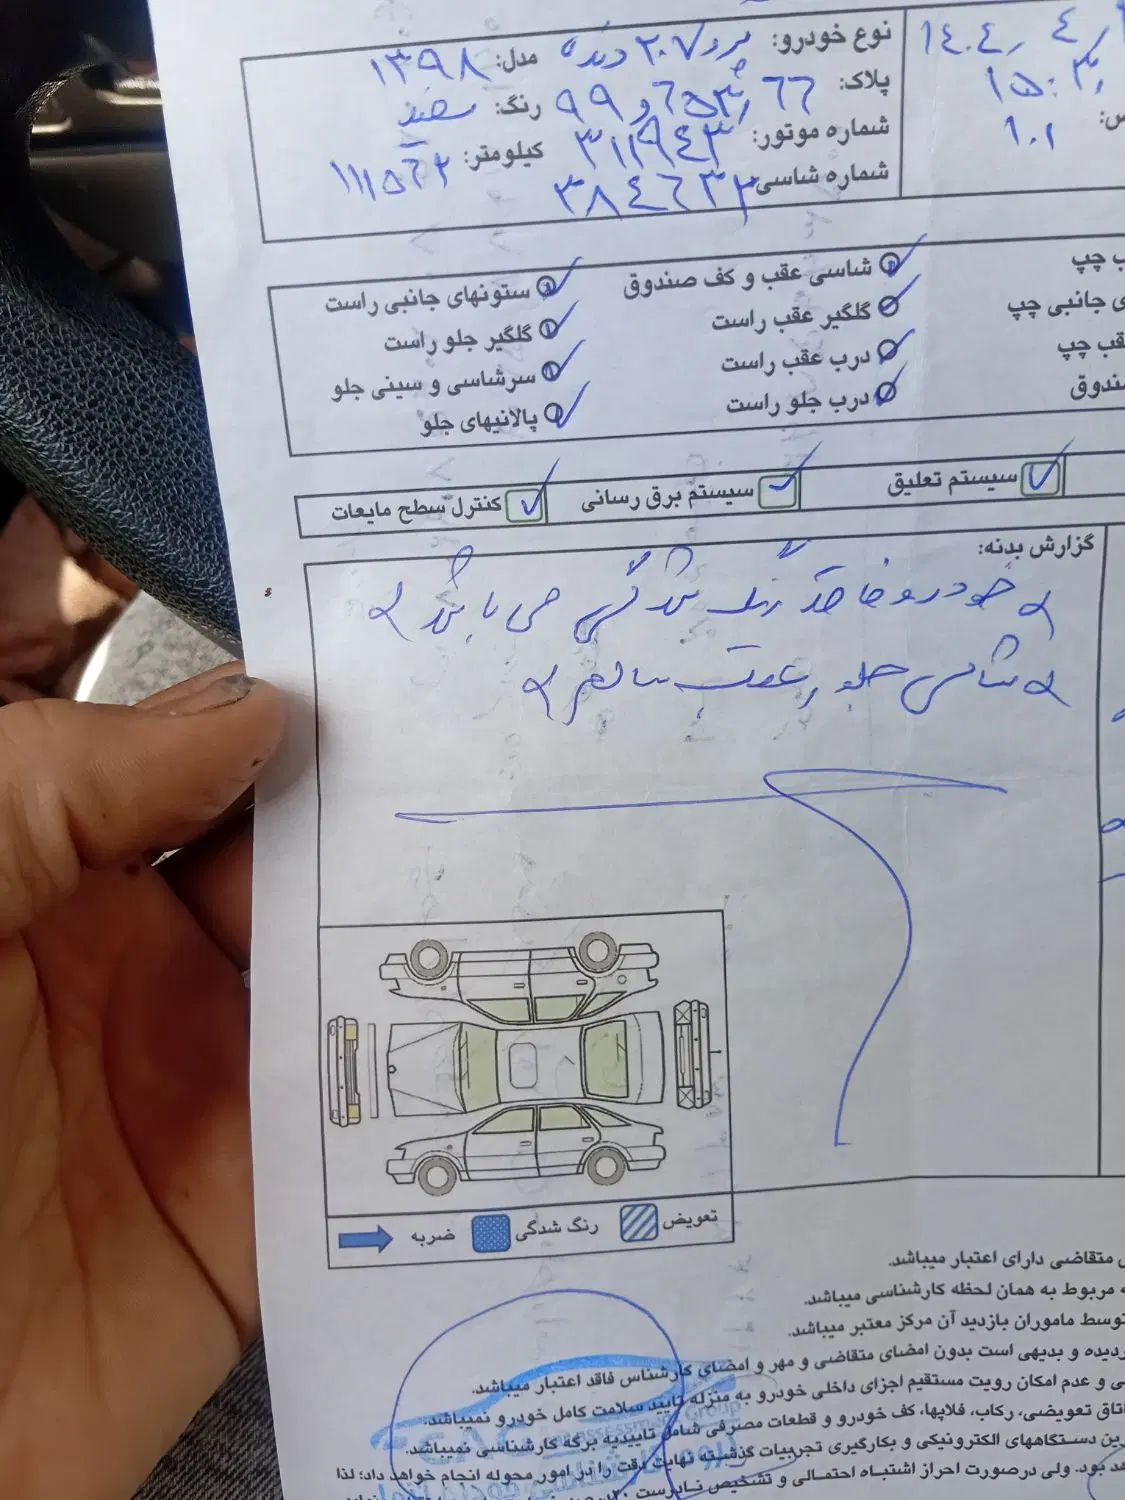 نوع خودرو: پژو ۲۰۷ دنده مدل: ۱۳۹۸
۱۴۰۴٫۴٫
پلاک: ۶۶ ۹۹ رنگ: سفید
۱۵:۳۰
شماره موتور: ۳۱۱۹۴۳ کیلومتر: ۱۱۱۵۶۲
س: ۱۰۱
شماره شاسی: ۳۸۴۶۳۲
ب چپ
شاسی عقب و کف صندوق
ستونهای جانبی راست
ی جانبی چپ
گلگیر عقب راست
گلگیر جلو راست
قب چپ
درب عقب راست
سرشاسی و سینی جلو
صندوق
درب جلو راست
پالانیهای جلو
سیستم تعلیق
سیستم برق رسانی
کنترل سطح مایعات
گزارش بدنه:
خودرو فاقد رنگ شدگی می باشد
شاسی جلو و عقب سالم
تعویض
رنگ شدگی
ضربه
متقاضی دارای اعتبار میباشد.
ه مربوط به همان لحظه کارشناسی میباشد.
توسط ماموران بازدید آن مرکز معتبر میباشد.
ردیده و بدیهی است بدون امضای متقاضی و مهر و امضای کارشناس فاقد اعتبار میباشد.
ی و عدم امکان رویت مستقیم اجزای داخلی خودرو به منزله تایید سلامت کامل خودرو نمیباشد.
اتاق تعویضی، رکاب، فلاپها، کف خودرو و قطعات مصرفی شامل تاییدیه برگه کارشناسی نمیباشد.
رین دستگاههای الکترونیکی و بکارگیری تجربیات گذشته نهایت دقت را در امور محوله انجام خواهد داد؛ لذا
هد بود. ولی درصورت احراز اشتباه احتمالی و تشخیص نادرست